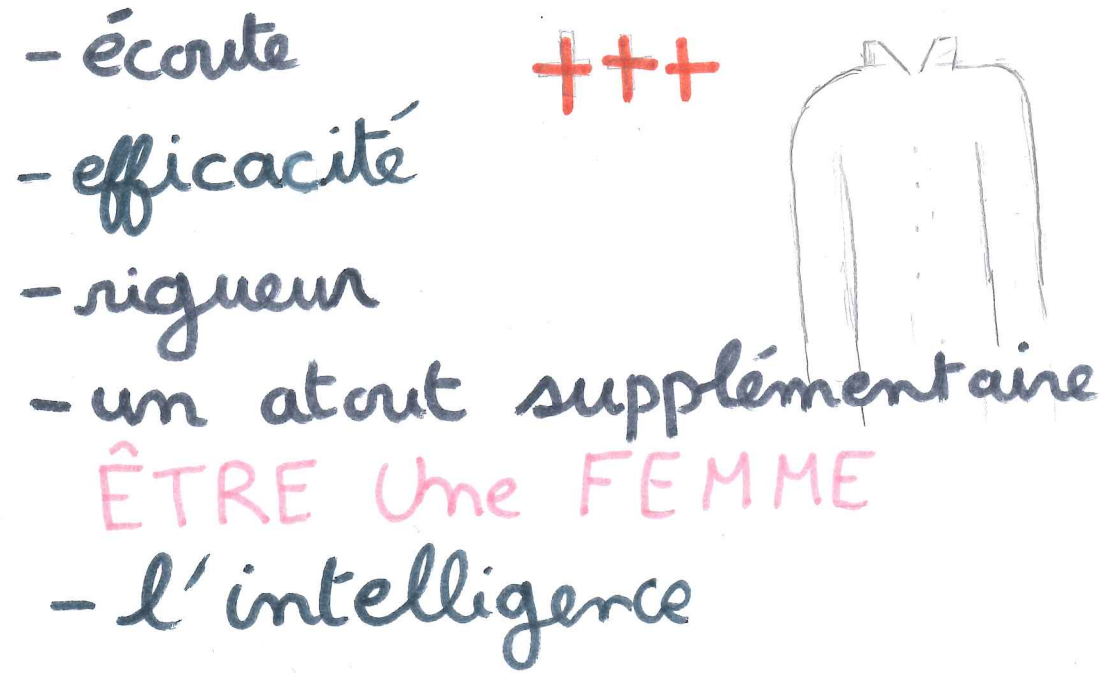 - écoute
+++
- efficacité
- rigueur
- un atout supplémentaire
ÊTRE Une FEMME
- l'intelligence